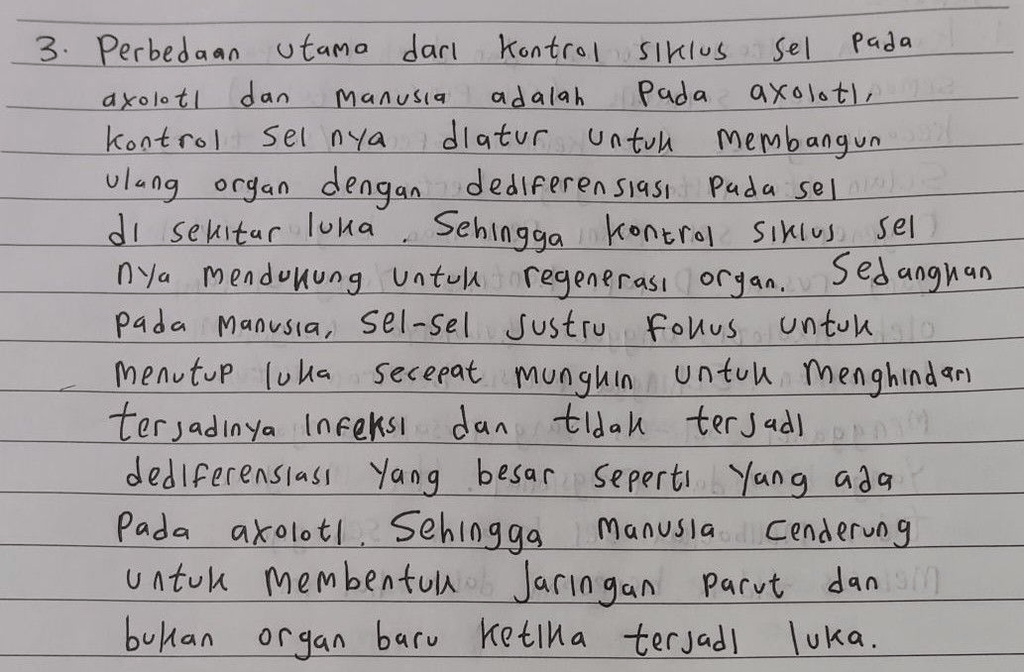 3. Perbedaan utama dari kontrol siklus sel pada
axolotl dan manusia adalah pada axolotl,
kontrol sel nya diatur untuk membangun
ulang organ dengan dediferensiasi pada sel
di sekitar luka. Sehingga kontrol siklus sel
nya mendukung untuk regenerasi organ. Sedangkan
pada manusia, sel-sel justru fokus untuk
menutup luka secepat mungkin untuk menghindari
terjadinya infeksi dan tidak terjadi
dediferensiasi yang besar seperti yang ada
pada axolotl. Sehingga manusia cenderung
untuk membentuk jaringan parut dan
bukan organ baru ketika terjadi luka.